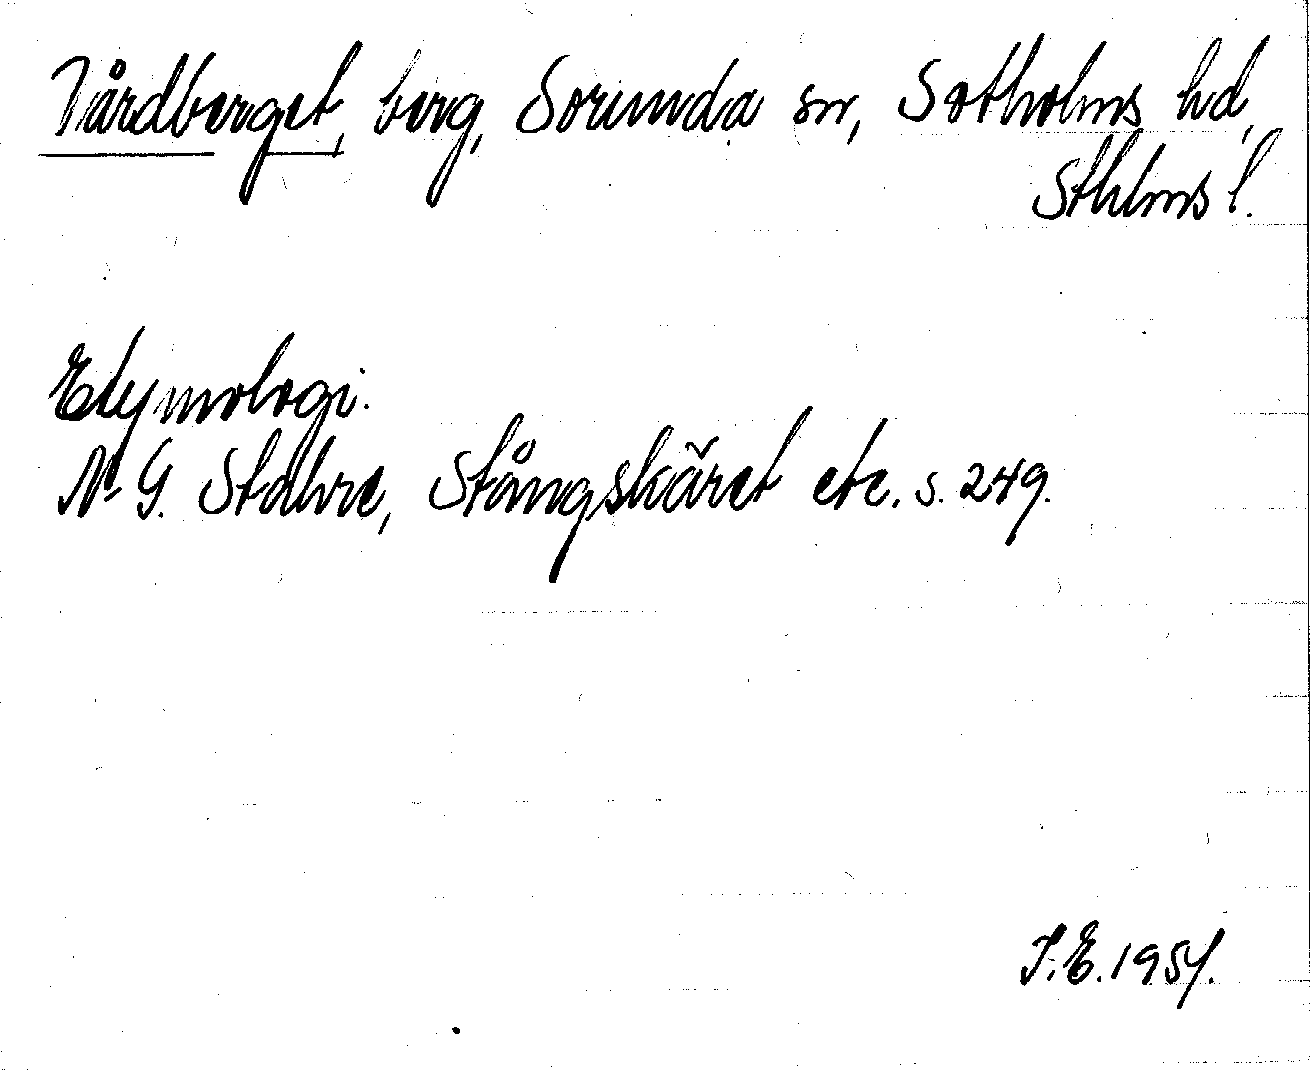 Vårdberget, berg, Sorunda sn, Sotholms hd,
Sthlms l.
Etymologi.
N. G. Stahre, Stångskäret etc. s. 249.
I. E. 1954.